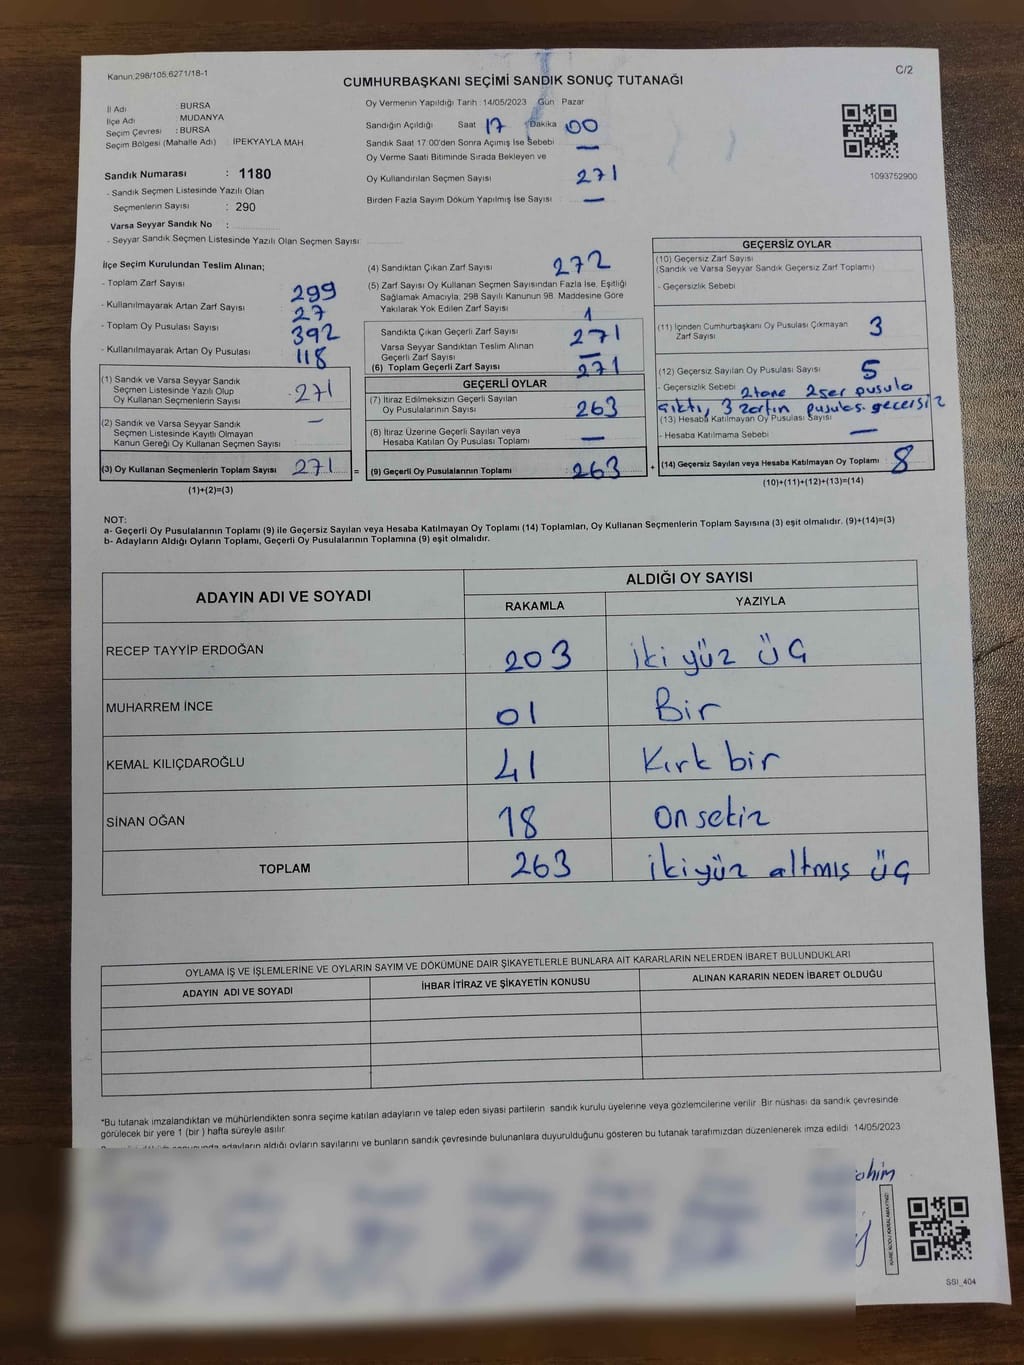 Kanun.298/105.6271/18-1
C/2
CUMHURBAŞKANI SEÇİMİ SANDIK SONUÇ TUTANAĞI
İl Adı : BURSA
İlçe Adı : MUDANYA
Seçim Çevresi : BURSA
Seçim Bölgesi (Mahalle Adı) : İPEKYAYLA MAH.
Sandık Numarası : 1180
- Sandık Seçmen Listesinde Yazılı Olan
Seçmenlerin Sayısı : 290
Varsa Seyyar Sandık No :
- Seyyar Sandık Seçmen Listesinde Yazılı Olan Seçmen Sayısı:
Oy Vermenin Yapıldığı Tarih : 14/05/2023 Gün Pazar
Sandığın Açıldığı Saat 17 Dakika 00
Sandık Saat 17:00'den Sonra Açımış İse Sebebi —
Oy Verme Saati Bitiminde Sırada Bekleyen ve
Oy Kullandırılan Seçmen Sayısı 271
Birden Fazla Sayım Döküm Yapılmış İse Sayısı —
1093752900
İlçe Seçim Kurulundan Teslim Alınan;
- Toplam Zarf Sayısı 299
- Kullanılmayarak Artan Zarf Sayısı 27
- Toplam Oy Pusulası Sayısı 392
- Kullanılmayarak Artan Oy Pusulası 118
(1) Sandık ve Varsa Seyyar Sandık
Seçmen Listesinde Yazılı Olup
Oy Kullanan Seçmenlerin Sayısı 271
(2) Sandık ve Varsa Seyyar Sandık
Seçmen Listesinde Kayıtlı Olmayan
Kanun Gereği Oy Kullanan Seçmen Sayısı —
(3) Oy Kullanan Seçmenlerin Toplam Sayısı 271 =
(1)+(2)=(3)
(4) Sandıktan Çıkan Zarf Sayısı 272
(5) Zarf Sayısı Oy Kullanan Seçmen Sayısından Fazla İse, Eşitliği
Sağlamak Amacıyla, 298 Sayılı Kanunun 98. Maddesine Göre
Yakılarak Yok Edilen Zarf Sayısı 1
Sandıkta Çıkan Geçerli Zarf Sayısı 271
Varsa Seyyar Sandıktan Teslim Alınan
Geçerli Zarf Sayısı —
(6) Toplam Geçerli Zarf Sayısı 271
GEÇERLİ OYLAR
(7) İtiraz Edilmeksizin Geçerli Sayılan
Oy Pusulalarının Sayısı 263
(8) İtiraz Üzerine Geçerli Sayılan veya
Hesaba Katılan Oy Pusulası Toplamı —
(9) Geçerli Oy Pusulalarının Toplamı : 263 +
GEÇERSİZ OYLAR
(10) Geçersiz Zarf Sayısı
(Sandık ve Varsa Seyyar Sandık Geçersiz Zarf Toplamı)
- Geçersizlik Sebebi
(11) İçinden Cumhurbaşkanı Oy Pusulası Çıkmayan
Zarf Sayısı 3
(12) Geçersiz Sayılan Oy Pusulası Sayısı 5
- Geçersizlik Sebebi 2 tane 2şer pusula
çıktı, 3 zarfın pusulas. geçersiz
(13) Hesaba Katılmayan Oy Pusulası Sayısı
- Hesaba Katılmama Sebebi —
(14) Geçersiz Sayılan veya Hesaba Katılmayan Oy Toplamı : 8
(10)+(11)+(12)+(13)=(14)
NOT:
a- Geçerli Oy Pusulalarının Toplamı (9) ile Geçersiz Sayılan veya Hesaba Katılmayan Oy Toplamı (14) Toplamları, Oy Kullanan Seçmenlerin Toplam Sayısına (3) eşit olmalıdır. (9)+(14)=(3)
b- Adayların Aldığı Oyların Toplamı, Geçerli Oy Pusulalarının Toplamına (9) eşit olmalıdır.
ADAYIN ADI VE SOYADI
ALDIĞI OY SAYISI
RAKAMLA YAZIYLA
RECEP TAYYİP ERDOĞAN 203 iki yüz üç
MUHARREM İNCE 01 Bir
KEMAL KILIÇDAROĞLU 41 Kırk bir
SİNAN OĞAN 18 On sekiz
TOPLAM 263 iki yüz altmış üç
OYLAMA İŞ VE İŞLEMLERİNE VE OYLARIN SAYIM VE DÖKÜMÜNE DAİR ŞİKAYETLERLE BUNLARA AİT KARARLARIN NELERDEN İBARET BULUNDUKLARI
ADAYIN ADI VE SOYADI İHBAR İTİRAZ VE ŞİKAYETİN KONUSU ALINAN KARARIN NEDEN İBARET OLDUĞU
*Bu tutanak imzalandıktan ve mühürlendikten sonra seçime katılan adayların ve talep eden siyasi partilerin sandık kurulu üyelerine veya gözlemcilerine verilir. Bir nüshası da sandık çevresinde
görülecek bir yere 1 (bir ) hafta süreyle asılır.
adayların aldığı oyların sayılarını ve bunların sandık çevresinde bulunanlara duyurulduğunu gösteren bu tutanak tarafımızdan düzenlenerek imza edildi. 14/05/2023
KARE KODU KARALAMAYINIZ!
SSİ_404